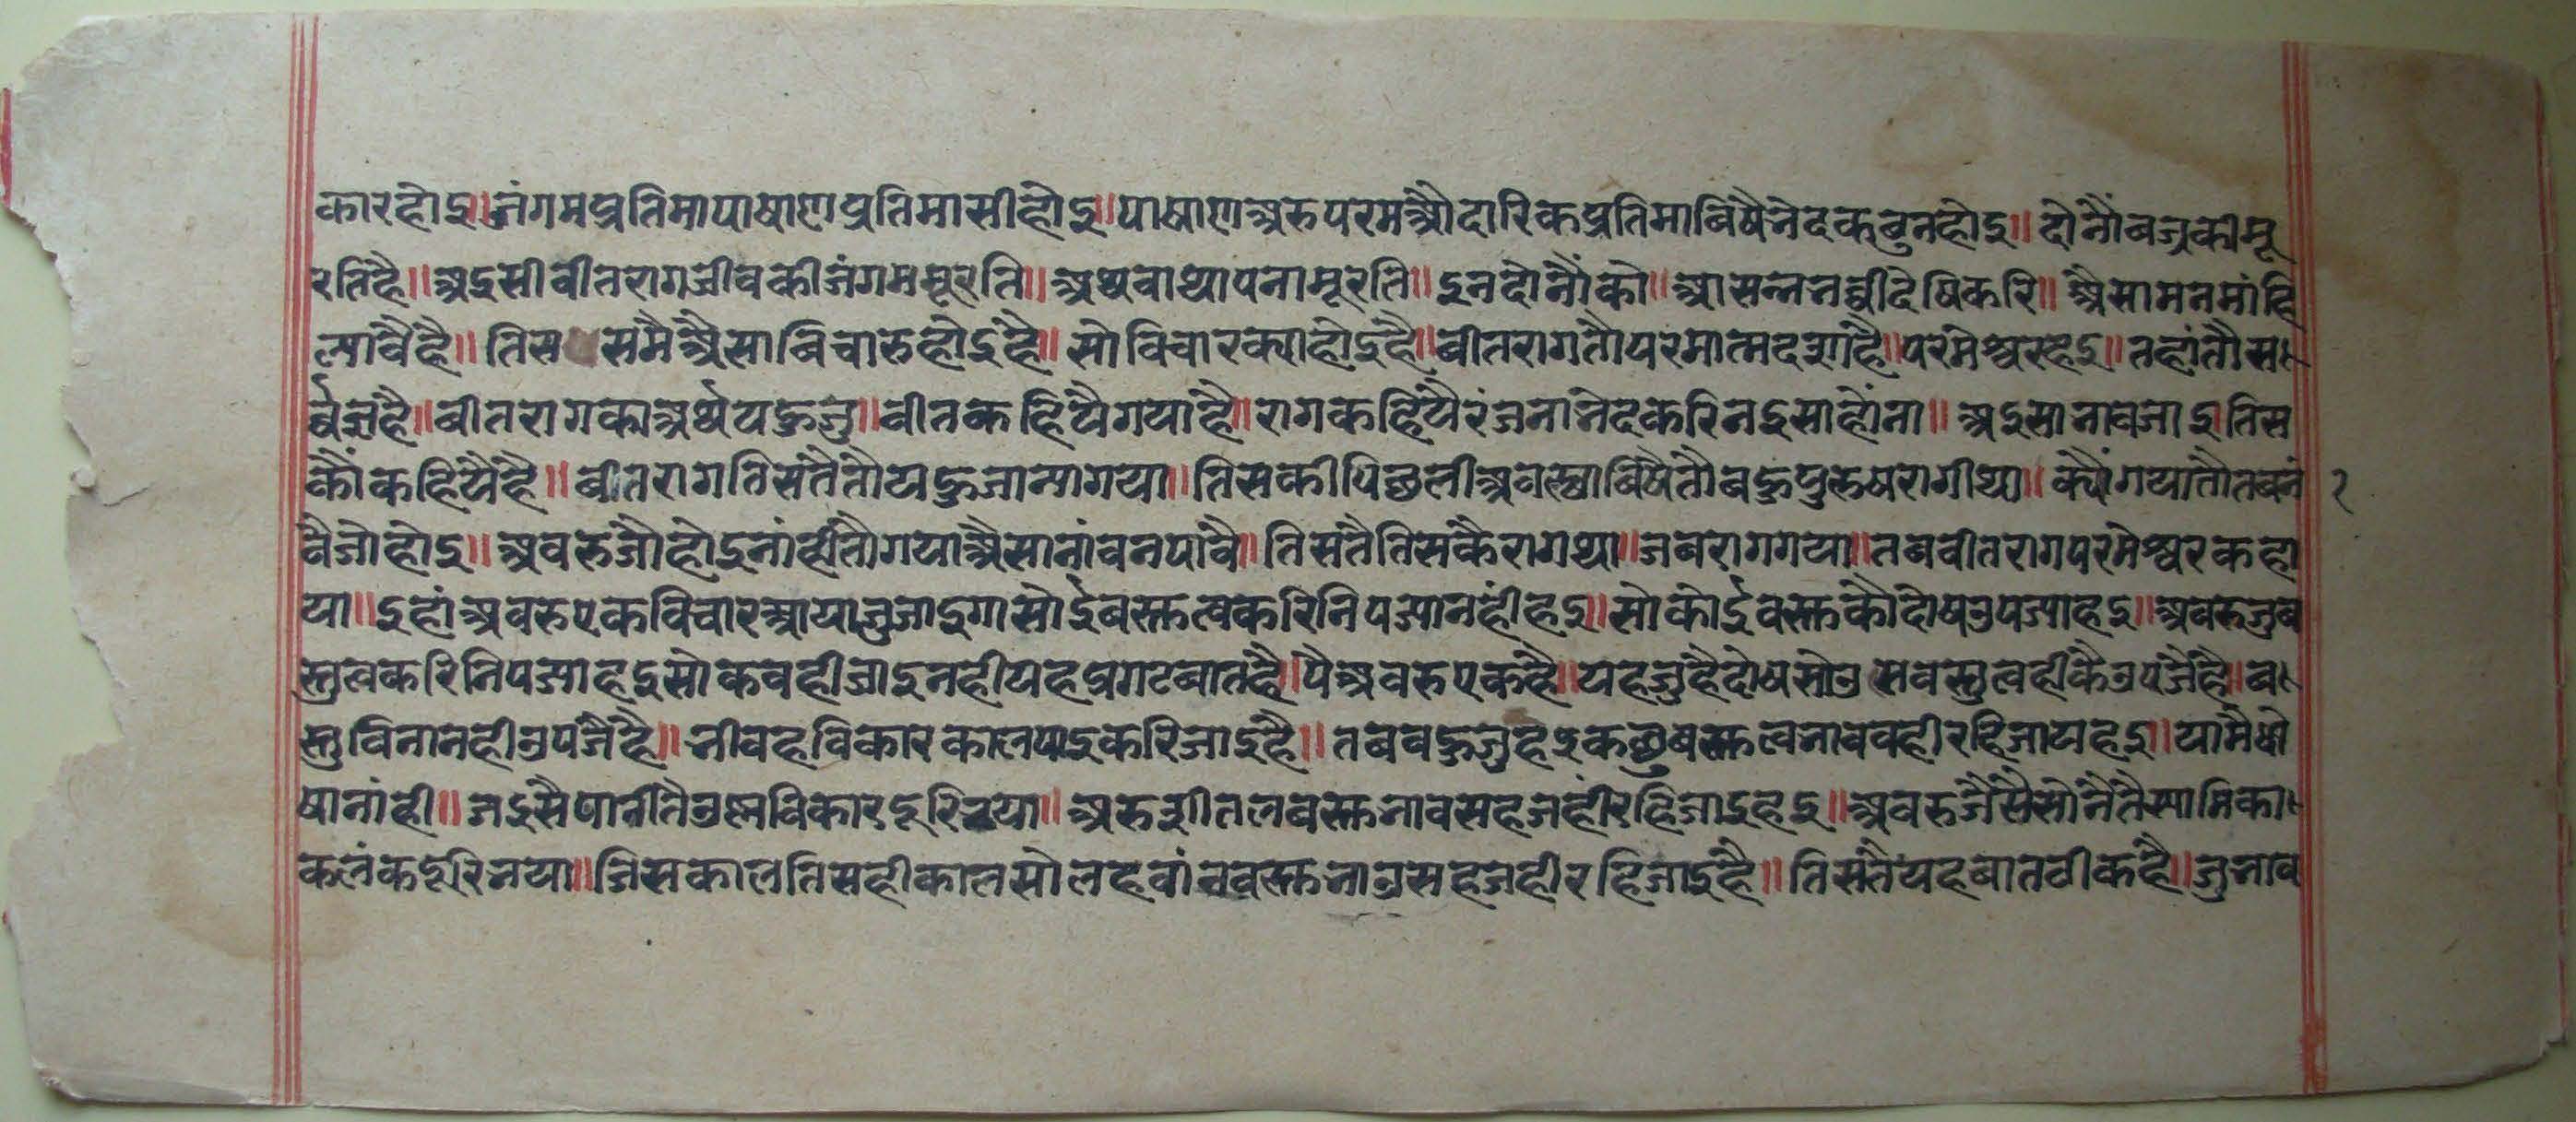 कारहोइ॥जंगमप्रतिमापाषाणप्रतिमासीहोइ॥पाषाणअरुपरमऔदारिकप्रतिमाविषैभेदकबुनहोइ॥दोनौंबज्रकीमू
रतिहै॥अइसीवीतरागजीवकीजंगममूरति॥अथवाथापनामूरति॥इनदोनौंको॥आसन्नभव्वीदेषिकरि॥औसामनमांहि
ल्यावैहै॥तिस समैऔसाविचारुहोइहै॥सोविचारक्याहोइहै॥वीतरागतौपरमात्मदशाहै॥परमेश्वरहइ॥तहांतौस
र्बज्ञहै॥वीतरागकाअर्थयहुजु॥वीतकहियैगयाहै॥रागकहियैरंजनाभेदकरिभइसाहोंना॥अइसाभावजाइतिस
कौंकहियैहै॥वीतरागतिसतैतौयहुजान्यागया॥तिसकीपिछलीअवस्थाविषैतौबहुपुरुषरागीथा॥क्यौंगयातौतबनं
वैजोहोइ॥अवरुजौहोइनांहीतौगयाऔसानांवनपावै॥तिसतैतिसकैरागथा॥जबरागगया॥तबवीतरागपरमेश्वरकहा
या॥इहांअवरुएकविचारआयाजुजाइगासोईबस्तुत्वकरिनिपज्यानहींहइ॥सोकोईवस्तुकौदोषउपज्याहइ॥अवरुजुब
स्तुत्वकरिनिपज्याहइसोकवहीजाइनहीयहप्रगटबातहै॥पैअवरुएकहै॥यहजुहैदोषसोउसवस्तुत्वहीकैउपजैहै॥व
स्तुविनानहीउपजैहै॥भीवहविकारकालपाइकरिजाइहै॥तबवहुजुहइकछुबस्तुत्वभाववहीरहिजायहइ॥यामैधो
षानांही॥जइसैपानीतैउष्णविकारदूरिभया॥अरुशीतलवस्तुभावसहजहींरहिजाइहइ॥अवरुजैसैसोनैतैस्यामिका
कलंकदूरिभया॥जिसकालतिसहीकालसोलहवांनवस्तुभाउसहजहीरहिजाइहै॥तिसतैयहबातठीकहै॥जुभाव
२